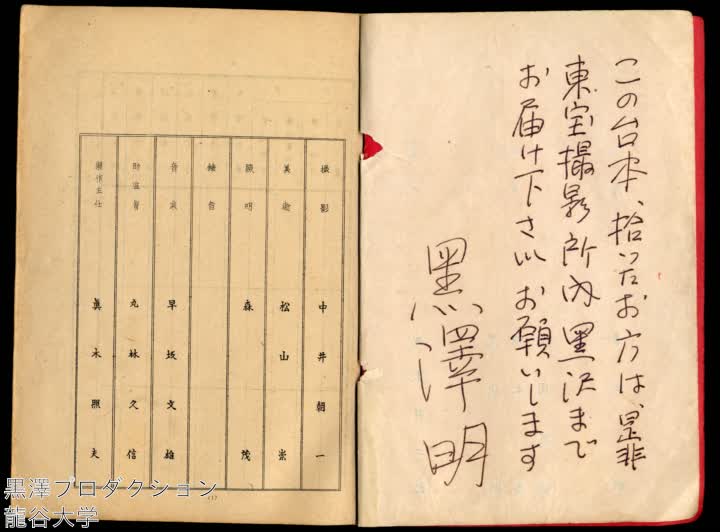 この台本、拾ったお方は、是非
東宝撮影所内黒沢まで
お届け下さい お願いします
黒澤明
撮影 中井朝一
美術 松山崇
照明 森茂
録音
音楽 早坂文雄
助監督 丸林久信
製作主任 眞木照夫
黒澤プロダクション
龍谷大学